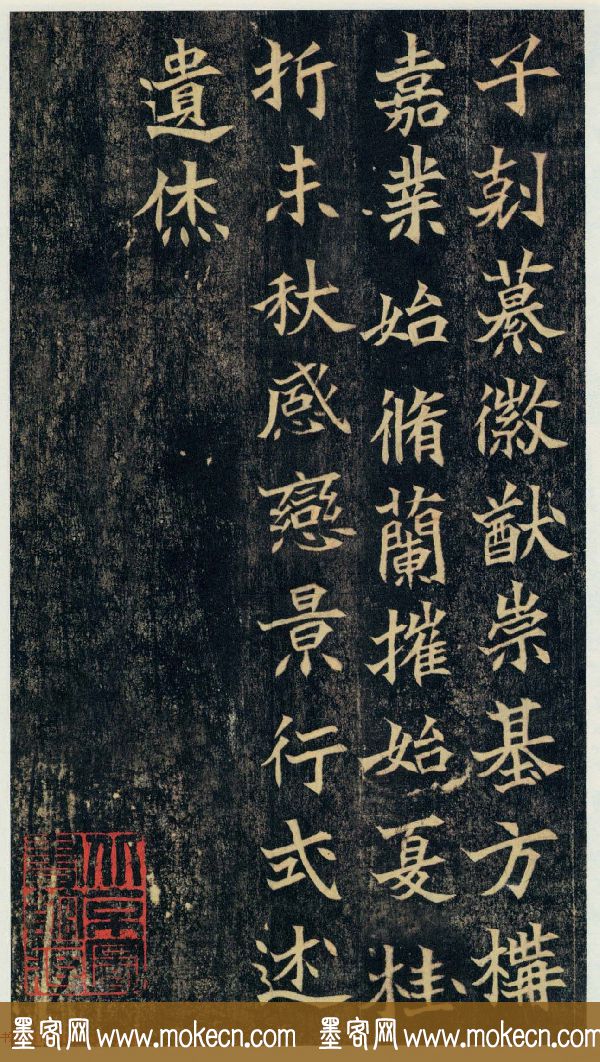 子剋纂徽猷崇基方構
嘉業始脩蘭摧始夏桂
折未秋感戀景行式述
遺烋
墨客网 www.mokecn.com 墨客网 www.mokecn.com